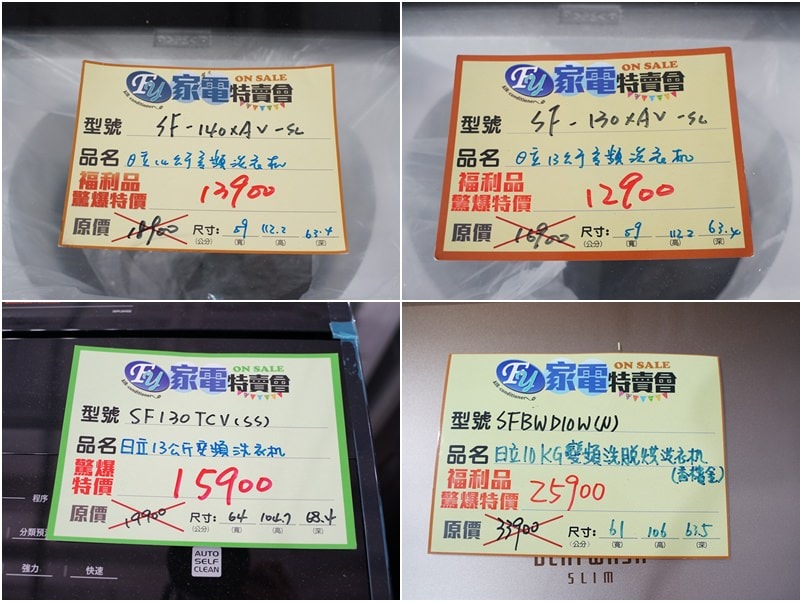 FY 家電特賣會 ON SALE
air conditioner
型號 SF-140XAV-SL
品名 日立14公斤变頻洗衣机
福利品
驚爆特價 13900
原價 18900 尺寸: 59 112.2 63.4
(公分) (寬) (高) (深)
FY 家電特賣會 ON SALE
air conditioner
型號 SF-130XAV-SL
品名 日立13公斤变頻洗衣机
福利品
驚爆特價 12900
原價 16900 尺寸: 59 112.2 63.4
(公分) (寬) (高) (深)
FY 家電特賣會 ON SALE
air conditioner
型號 SF130TCV(SS)
品名 日立13公斤變頻洗衣机
驚爆
特價 15900
原價 19900 尺寸: 64 104.7 68.4
(公分) (寬) (高) (深)
程序
分類預
強力
快速
AUTO
SELF
CLEAN
FY 家電特賣會 ON SALE
air conditioner
型號 SFBWD10W(N)
品名 日立10KG變頻洗脫烘洗衣机
(香檳金)
福利品
驚爆特價 25900
原價 33900 尺寸: 61 106 63.5
(公分) (寬) (高) (深)
SLIM